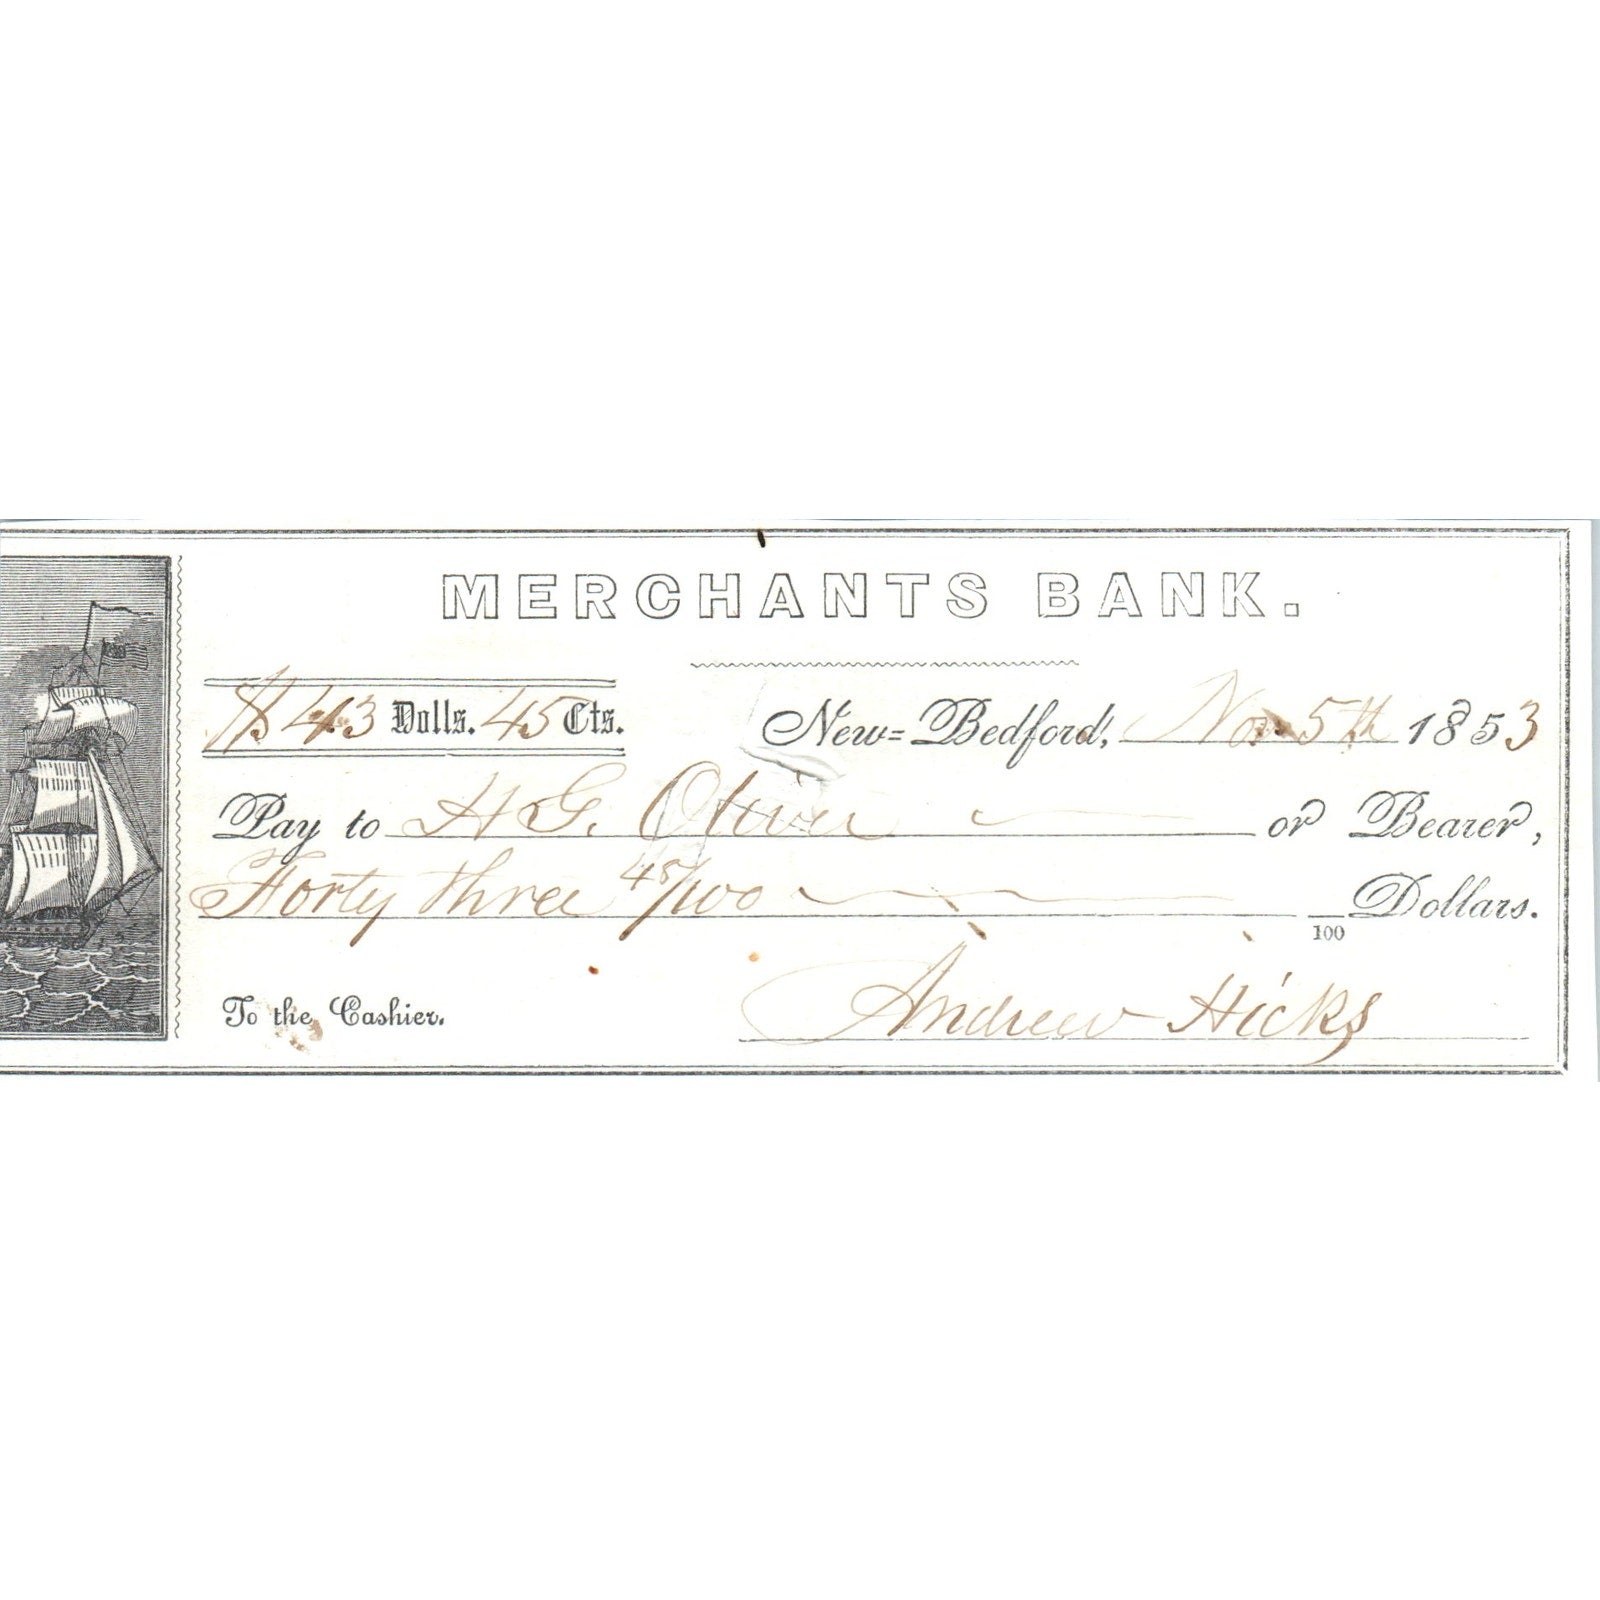 MERCHANTS BANK.
$ 43 Dolls. 45 Cts. New=Bedford, Nov 5th 1853
Pay to H G. Oliver or Bearer,
Forty three 45/100 Dollars.
100
To the Cashier. Andrew Hicks